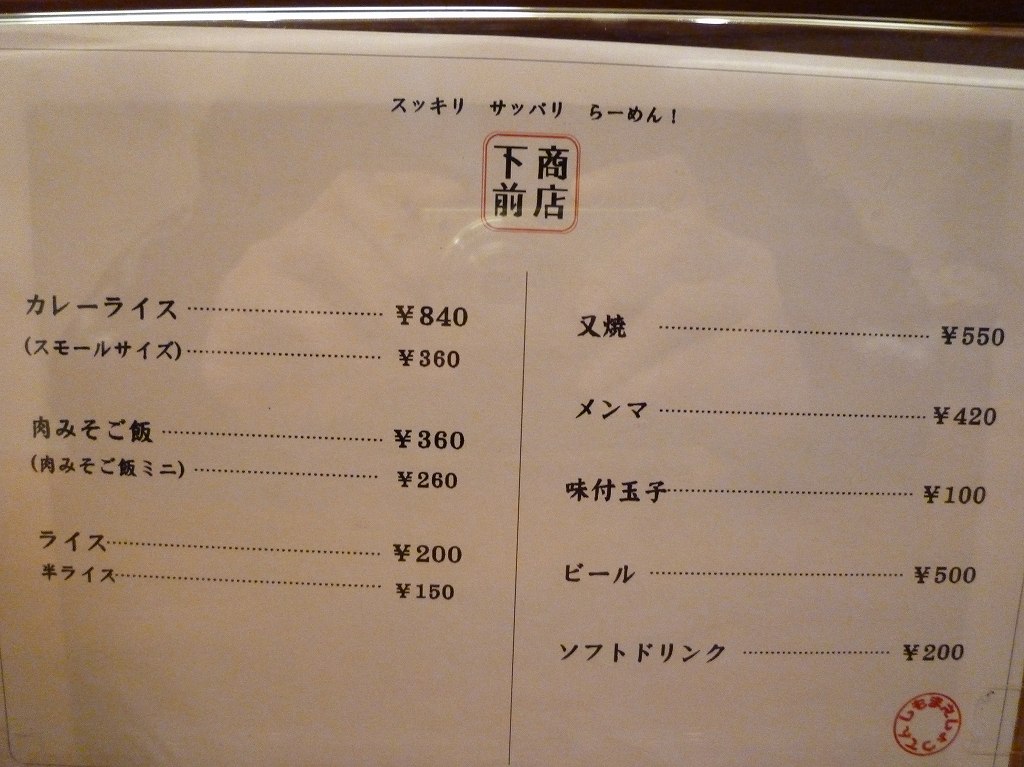 スッキリ サッパリ らーめん!
下前
商店
カレーライス ¥840
(スモールサイズ) ¥360
肉みそご飯 ¥360
(肉みそご飯ミニ) ¥260
ライス ¥200
半ライス ¥150
叉焼 ¥550
メンマ ¥420
味付玉子 ¥100
ビール ¥500
ソフトドリンク ¥200